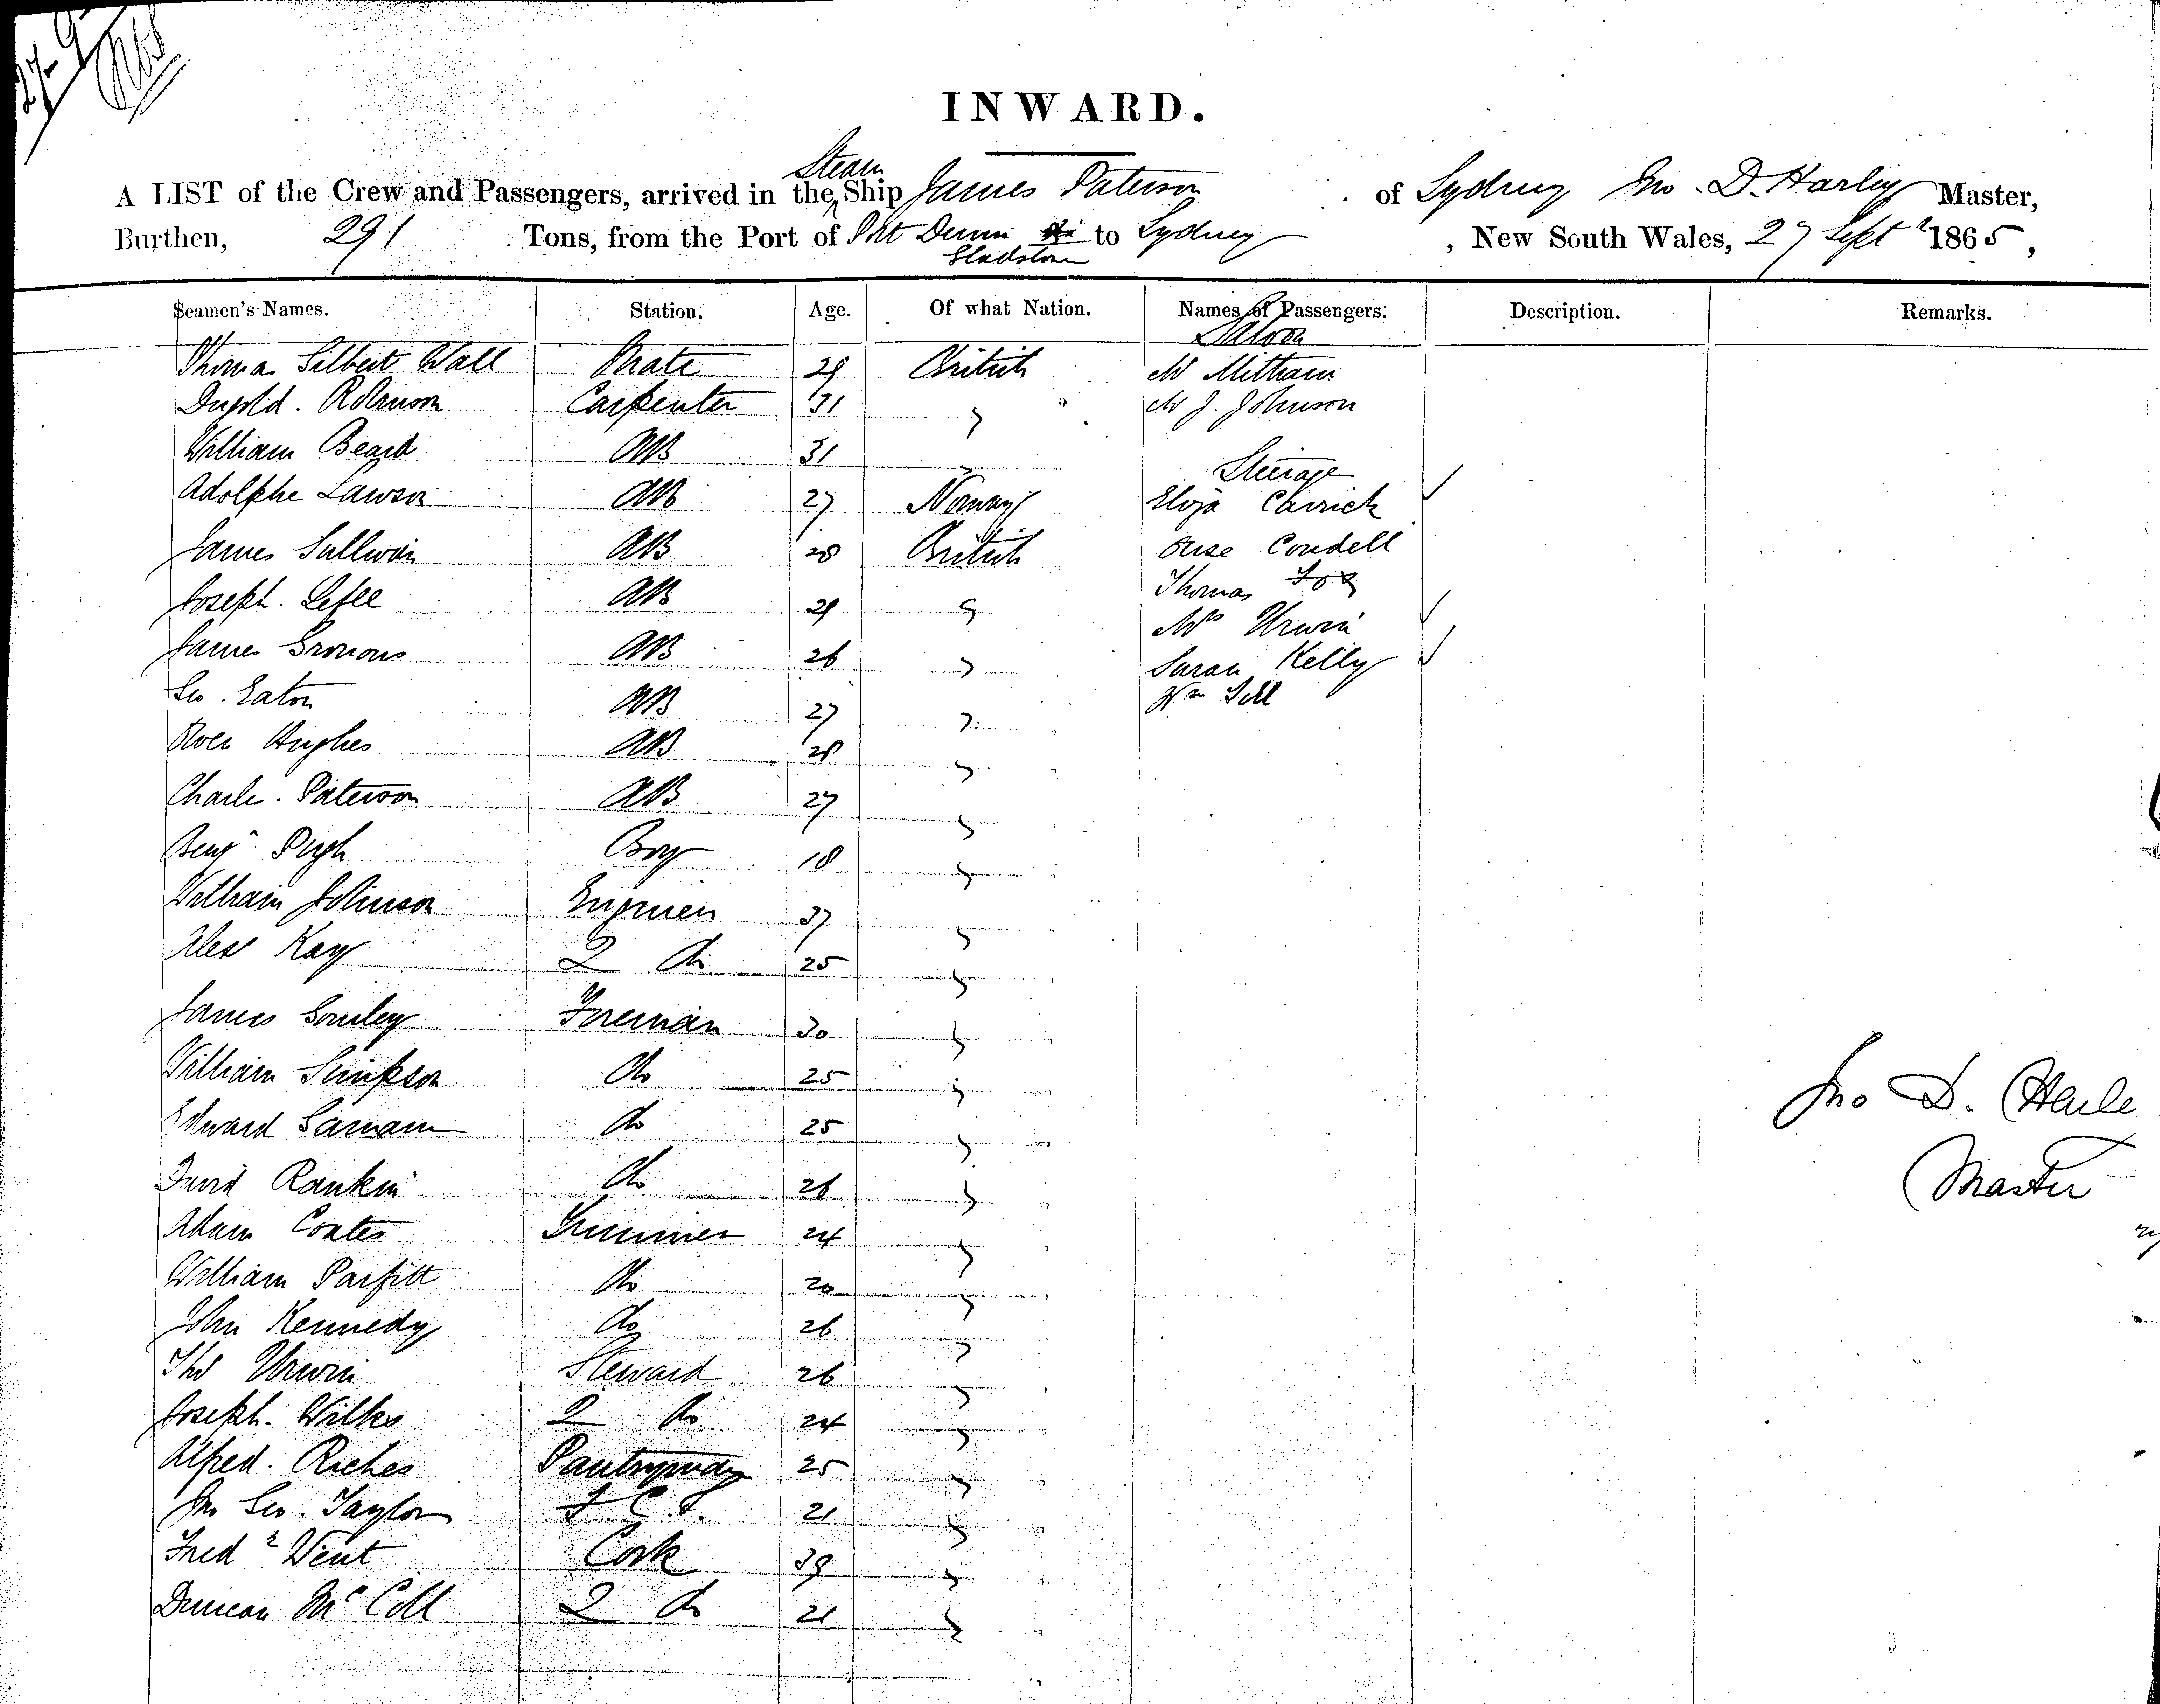 INWARD.
Steam
A LIST of the Crew and Passengers, arrived in the Ship James Paterson of Sydney Jno. D. Harley Master,
Burthen, 291 Tons, from the Port of Port to Sydney, New South Wales, 27 Sept 1865,
Gladstone
Seamen's Names. Station. Age. Of what Nation. Names of Passengers. Description. Remarks.
Saloon
Thomas Gilbert Wall Mate 29 British Mr Mitham
Dugold. Robinson Carpenter 31 " Mr J. Johnson
William Beard AB 31
Steerage
Adolphe Lawson AB 27 Norway Eliza Carrick
James Sullivan AB 28 British Rose Condell
Thomas Fox
Joseph. AB 29 " Mrs Urwin
James AB 26 " Sarah Kelly
Geo. Eaton AB 27 " Wm Gill
Owen Hughes AB 28 "
Charle. Paterson AB 27 "
Benj Pugh Boy 18 "
William Johnson Engineer 37 "
Alex Kay 2 do 25 "
James Gourley Foreman 30 "
William Simpson do 25 "
Edward do 25 "
David Rankin do 26 "
Adam Coates Trimmer 24 "
William Parfitt do 20 "
John Kennedy do 26 "
Thos Urwin Steward 26 "
Joseph. Wilks 2 do 24 "
Alfred. Riches Pantryman 25 "
Jno Geo. Taylor 21 "
Fredk Went Cook 39 "
Duncan McColl 2 do 21 "
Jno D. Harle
Master